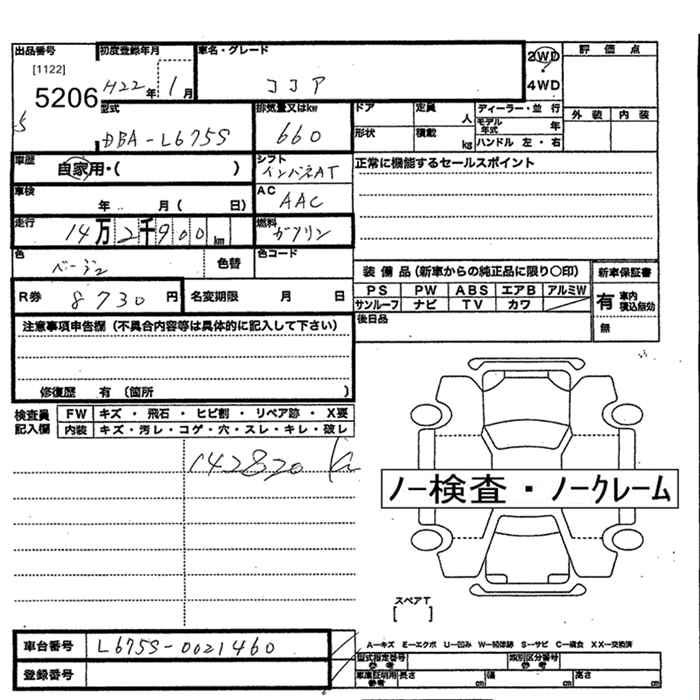 出品番号 初度登録年月 車名・グレード 2WD 評価点
[1122] 5206 H22年 1月 ココア 4WD
型式 排気量又はkw ドア 定員 人 ディーラー・並行 外装 内装
DBA-L675S 660 形状 積載 kg モデル年式 年
ハンドル 左・右
車歴 自家用・( ) シフト インパネAT 正常に機能するセールスポイント
車検 年 月( 日) AC AAC
走行 14万2千900km 燃料 ガソリン
色 ベージュ 色替 色コード
装備品(新車からの純正品に限り〇印) 新車保証書
R券 8730円 名変期限 月 日 PS PW ABS エアB アルミW 有 車内積込無効
サンルーフ ナビ TV カワ
注意事項申告欄(不具合内容等は具体的に記入して下さい) 後日品 無
修復歴 有(箇所 )
検査員記入欄 FW キズ・飛石・ヒビ割・リペア跡・X要
内装 キズ・汚レ・コゲ・穴・スレ・キレ・破レ
142820
ノー検査・ノークレーム
スペアT
[ ]
車台番号 L675S-0021460 A-キズ E-エクボ U-凹み W-補修跡 S-サビ C-腐食 XX-交換済
型式指定番号 参考 類別区分番号 参考
登録番号 車庫証明用参考 長さ cm 幅 cm 高さ cm